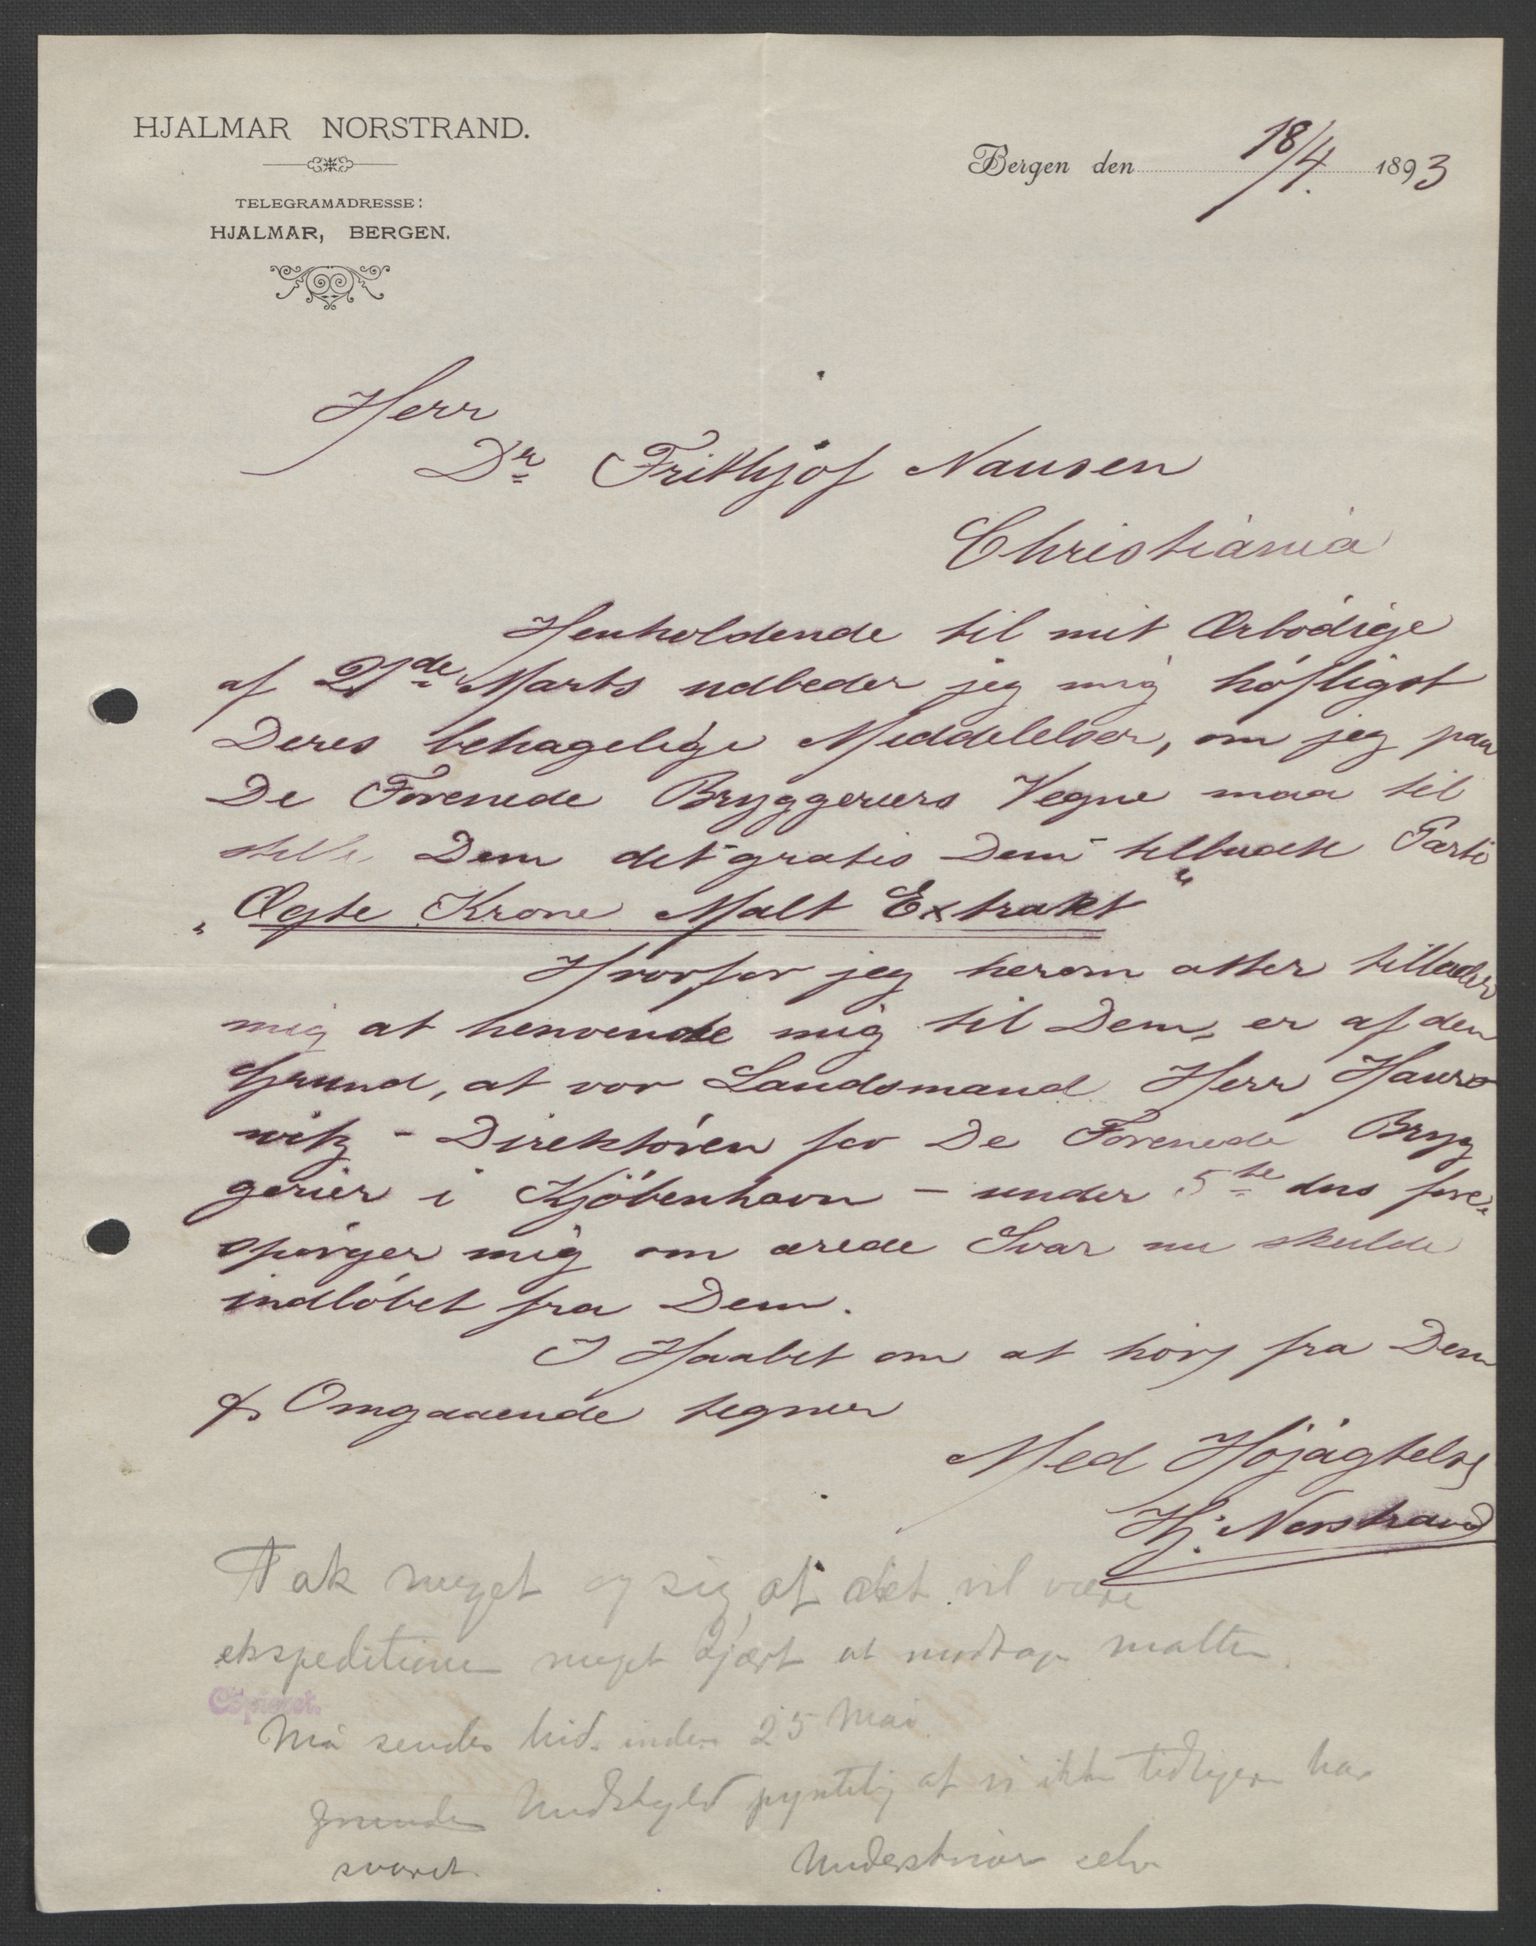 HJALMAR NORSTRAND.
TELEGRAMADRESSE:
HJALMAR, BERGEN.
Bergen den 18/4. 1893
Herr
Dr Frithjof Nansen
Christiania
Henholdende til mit Ærbödige
af 21de Marts udbeder jeg mig höfligst
Deres behagelige Meddelelser, om jeg paa
De Forenede Bryggeriers Vegne maa til
stille Dem det gratis Dem tilbudte Parti
„Ægte Krone Malt Extrakt"
Hvorfor jeg herom atter tillader
mig at henvende mig til Dem, er af den
Grund, at vor Landsmand Herr Hauro
witz - Direktören for De Forenede Bryg
gerier i Kjöbenhavn - under 5te dns fore-
spörger mig om ærede Svar nu skulde
indlöbet fra Dem.
I Haabet om at höre fra Dem
pr Omgaaende tegner
Med Höjagtelse
Hj. Norstrand
Tak meget og sig at det vil være
ekspeditionen meget kjært at modtage malten.
Copieret.
Må sendes hid inden 25 Mai
Undskyld at vi ikke tidligere har
svaret. Underskriver selv